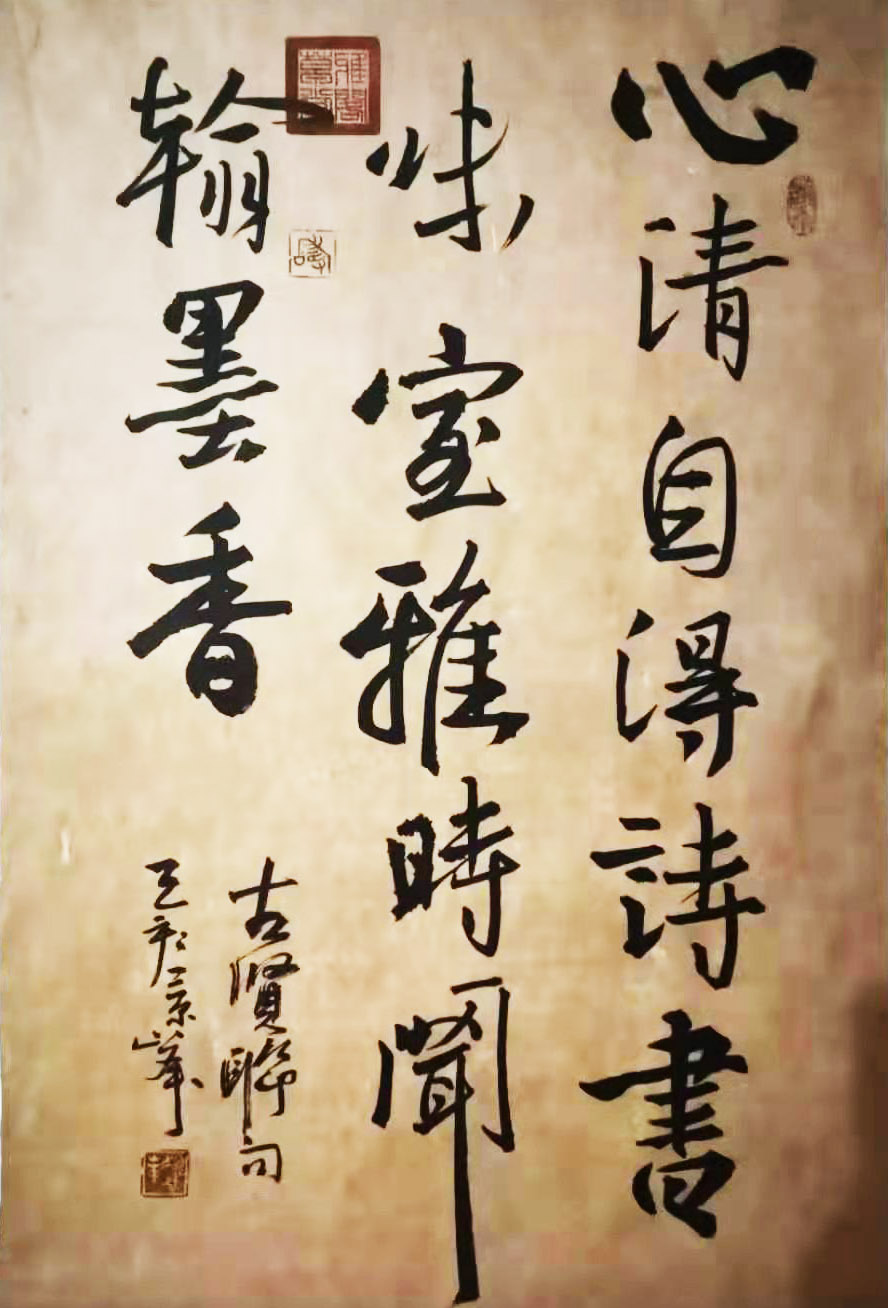 心清自得詩書
味室雅時聞
翰墨香
古賢聯句
景峰